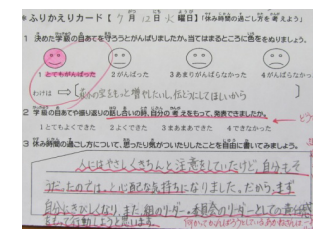 *ふりかえりカード【7月12日火曜日】「休み時間の過ごし方を考えよう」
1 決めた学級の目あてを守ろうとがんばりましたか。当てはまるところに色をぬりましょう。
1 とてもがんばった 2 がんばった 3 あまりがんばらなかった 4 がんばらなかった
わけは ⇒ 自分の宝をもっと増やしたいし、伝どうにしてほしいから
2 学級の目あてや振り返りの話し合いの時、自分の考えをもって、発表できましたか。
1 とてもよくできた 2 よくできた 3 まあまあできた 4 できなかった
3 休み時間の過ごし方について、思ったり気がついたりしたことを自由に書いてみましょう。
人にはやさしくきちんと注意をしていたけど、自分もそ
うだったのでは、と心配な気持ちになりました。だから、まず
自分にきびしくなり、また、組のリーダー、
リーダーとしての責任感
をもって行動しようと思います。